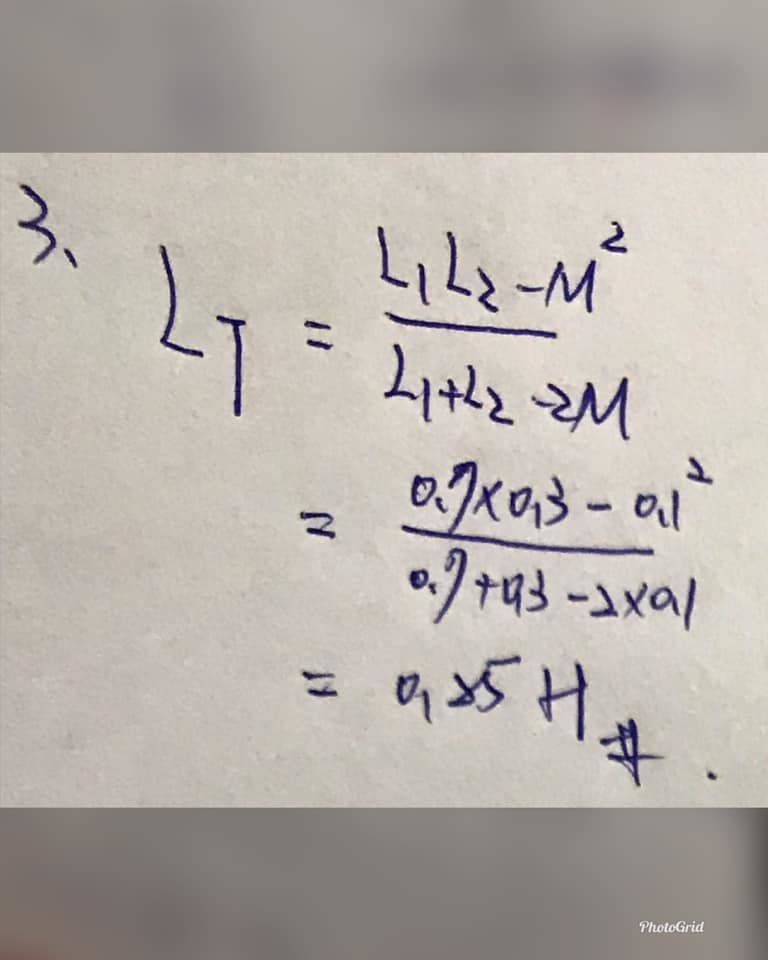 3、
L_T = (L₁L₂ - M²) / (L₁+L₂ - 2M)
= (0.7×0.3 - 0.1²) / (0.7+0.3 - 2×0.1)
= 0.25 H #.
PhotoGrid